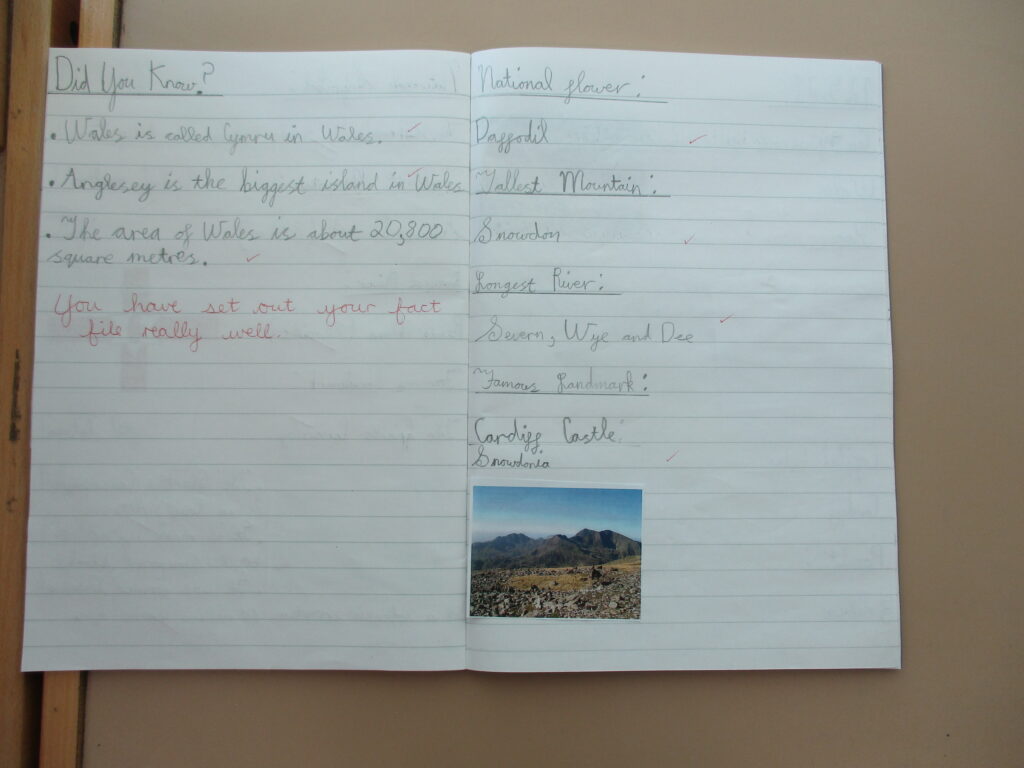 Did You Know?
• Wales is called Cymru in Wales.
• Anglesey is the biggest island in Wales
• The area of Wales is about 20,800
square metres.
You have set out your fact
file really well.
National flower:
Daffodil
Tallest Mountain:
Snowdon
Longest River:
Severn, Wye and Dee
Famous Landmark:
Cardiff Castle.
Snowdonia